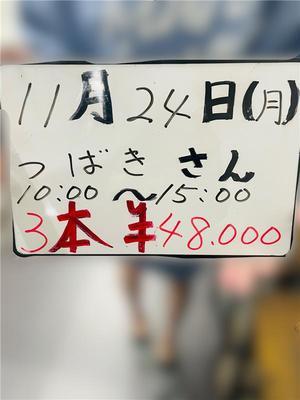 11月24日(月)
つばき さん
10:00〜15:00
3本 ¥48.000